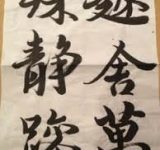 趣舍萬
殊静躁